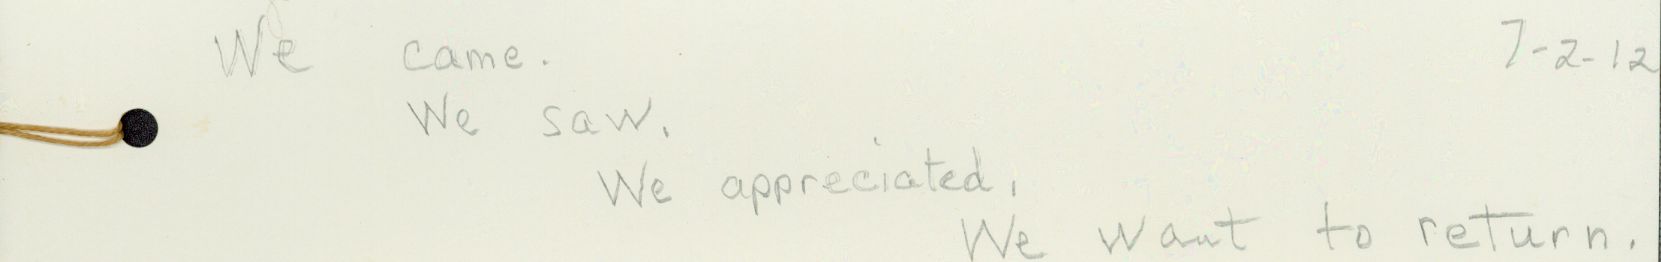 We came. 7-2-12
We saw.
We appreciated.
We want to return.